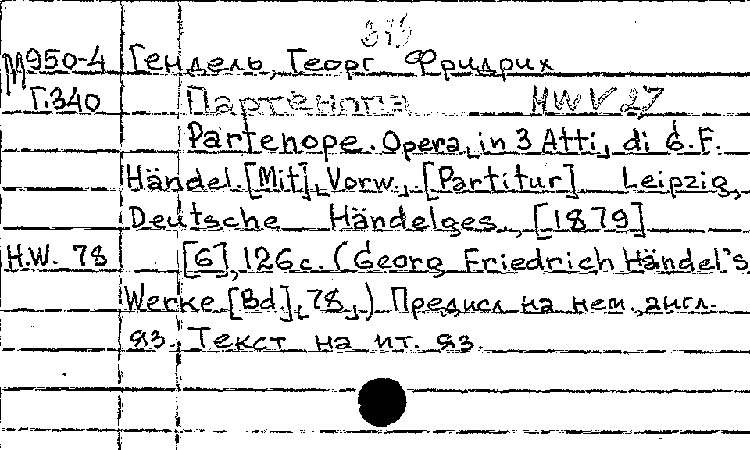 М950-4 Гендель, Георг Фридрих
Г.340 Партенопа HWV 27
Partenope. Opera, in 3 Atti, di G. F.
Händel. [Mit] Vorw., [Partitur] Leipzig,
Deutsche Händelges., [1879]
H.W. 78 [6], 126 с. (Georg Friedrich Händel's
Werke [Bd]. 78,) Предисл на нем., англ.
яз. Текст на ит. яз.